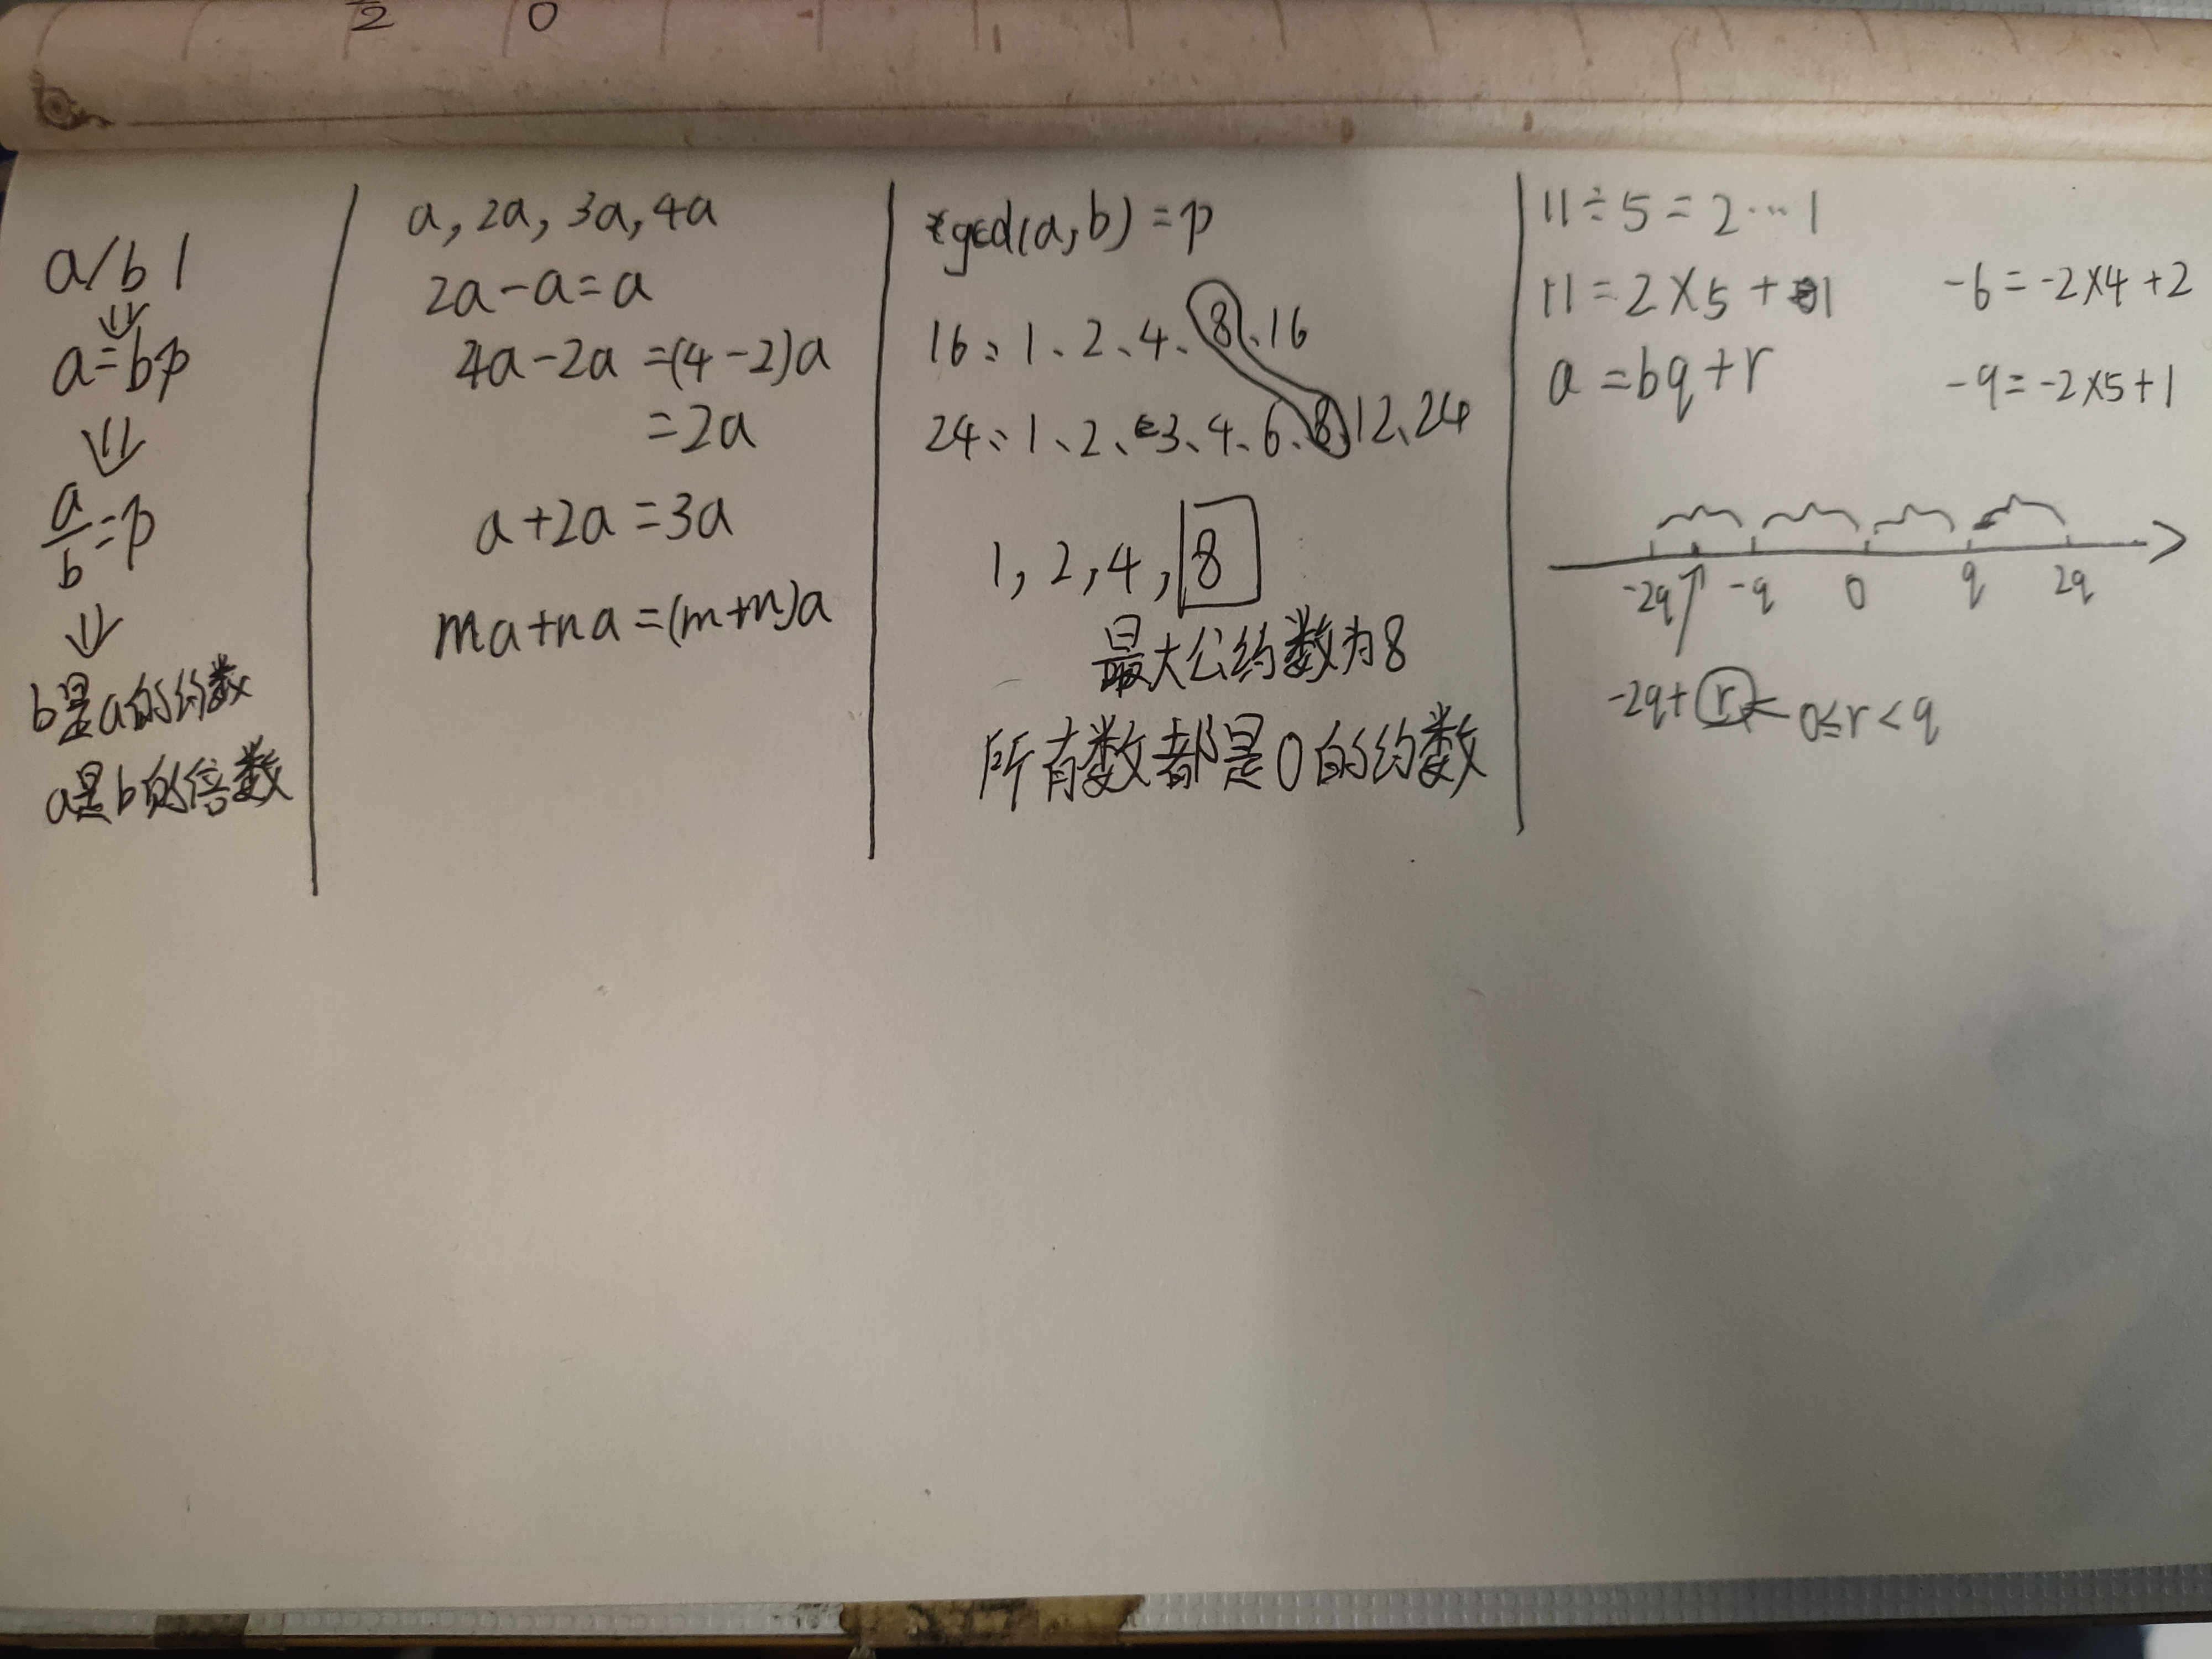 2 0
a/b |
⇓
a=bp
⇓
a/b=p
⇓
b是a的约数
a是b的倍数
a, 2a, 3a, 4a
2a-a=a
4a-2a=(4-2)a
=2a
a+2a=3a
ma+na=(m+n)a
gcd(a,b)=p
16: 1、2、4、8、16
24: 1、2、3、4、6、8、12、24
1, 2, 4, 8
最大公约数为8
所有数都是0的约数
11÷5=2…1
11=2×5+1
a=bq+r
-6=-2×4+2
-9=-2×5+1
-2q -q 0 q 2q
-2q+r ← 0≤r<q